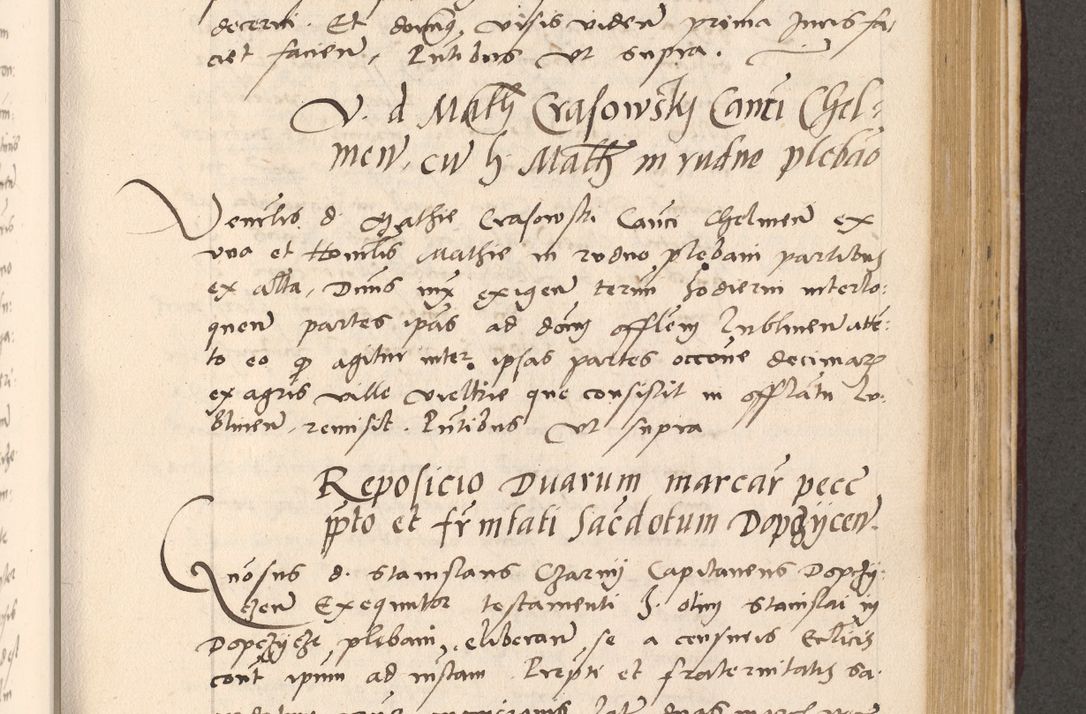 decerni. Et domus, visis videndis prima Juris fa-
ciet faciend, Pntibus ut supra.
V. d Math Crasowskÿ Canci Chel=
men. cu h. Math in rudno plebano
Venrlis d. Mathie Crasowski Canci Chelmen ex
vna et Honrlis Mathie in rudno plebani partibus
ex altta, Dnus exigen termi hodierni interlo:
quen partes ipas ad domi offlem Lublinen atte:
to eo qd agitur inter ipsas partes occone decimar
ex agris ville vielkie que consistit in offlatu Lu-
blinen, remisit. Pntibus ut supra
Reposicio Duarum marcar pecc
ppto et frnitati Sacdotum Dopczycen.
Gnosus d. stanislaus Czarnÿ Capitaneus Dopczÿ:
czen Exequutor testamenti h. olim stanislai in
Dopczycze, plebani, eliberan se a censuris Ecclicis
cont ipum ad instam Prepti et fraternitatis sa-